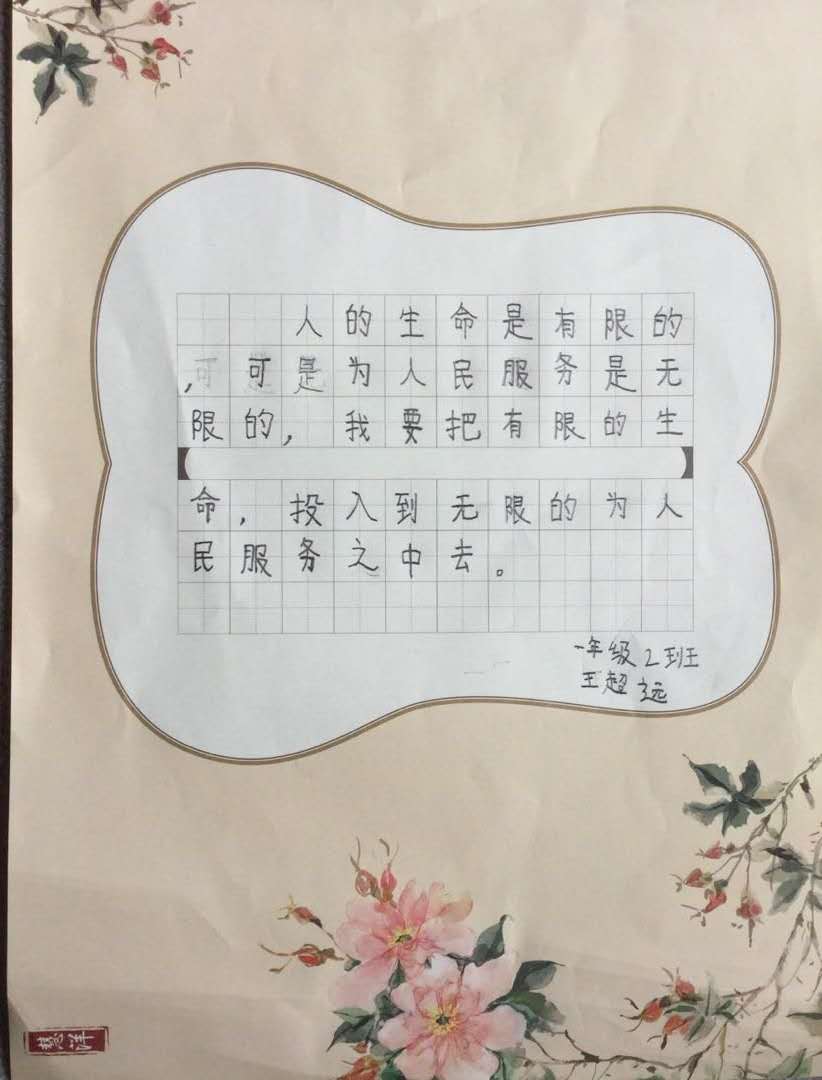 人的生命是有限的
,可是为人民服务是无
限的,我要把有限的生
命,投入到无限的为人
民服务之中去。
一年级2班
王超远